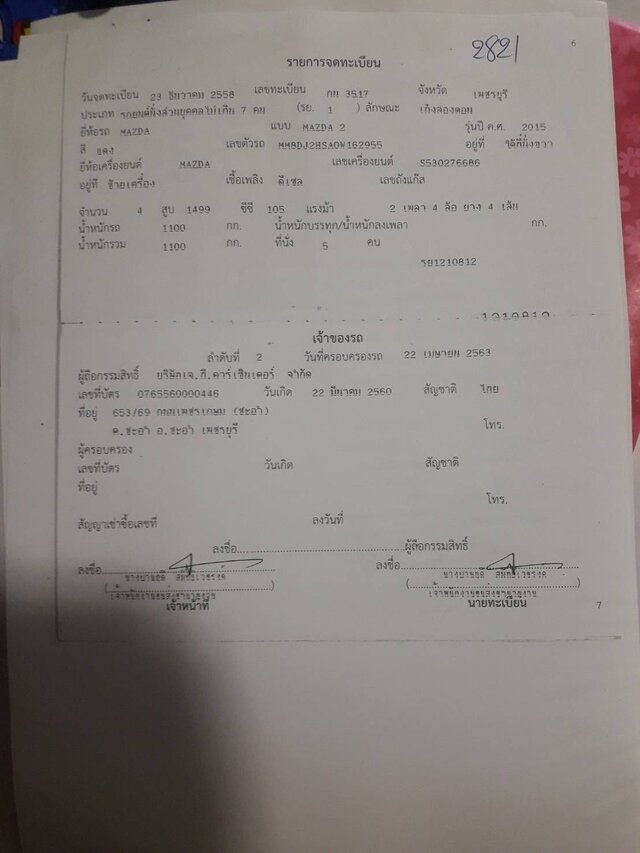 2821
6
รายการจดทะเบียน
วันจดทะเบียน 23 ธันวาคม 2558 เลขทะเบียน กน 3517 จังหวัด เพชรบุรี
ประเภท รถยนต์นั่งส่วนบุคคลไม่เกิน 7 คน (รย. 1 ) ลักษณะ เก๋งสองตอน
ยี่ห้อรถ MAZDA แบบ MAZDA 2 รุ่นปี ค.ศ. 2015
สี แดง เลขตัวรถ MM8DJ2HSA0W162955 อยู่ที่ ใต้ที่นั่งขวา
ยี่ห้อเครื่องยนต์ MAZDA เลขเครื่องยนต์ S530276686
อยู่ที่ ซ้ายเครื่อง เชื้อเพลิง ดีเซล เลขถังแก๊ส
จำนวน 4 สูบ 1499 ซีซี 105 แรงม้า 2 เพลา 4 ล้อ ยาง 4 เส้น
น้ำหนักรถ 1100 กก. น้ำหนักบรรทุก/น้ำหนักลงเพลา กก.
น้ำหนักรวม 1100 กก. ที่นั่ง 5 คน
รย1210812
เจ้าของรถ
ลำดับที่ 2 วันที่ครอบครองรถ 22 เมษายน 2563
ผู้ถือกรรมสิทธิ์ บริษัทเจ.ที.คาร์เซ็นเตอร์ จำกัด
เลขที่บัตร 0765560000446 วันเกิด 22 มีนาคม 2560 สัญชาติ ไทย
ที่อยู่ 653/69 ถนนเพชรเกษม (ชะอำ)
ต.ชะอำ อ.ชะอำ เพชรบุรี โทร.
ผู้ครอบครอง
เลขที่บัตร วันเกิด สัญชาติ
ที่อยู่
โทร.
สัญญาเช่าซื้อเลขที่ ลงวันที่
ลงชื่อ ผู้ถือกรรมสิทธิ์
ลงชื่อ ลงชื่อ
เจ้าหน้าที่ นายทะเบียน
7